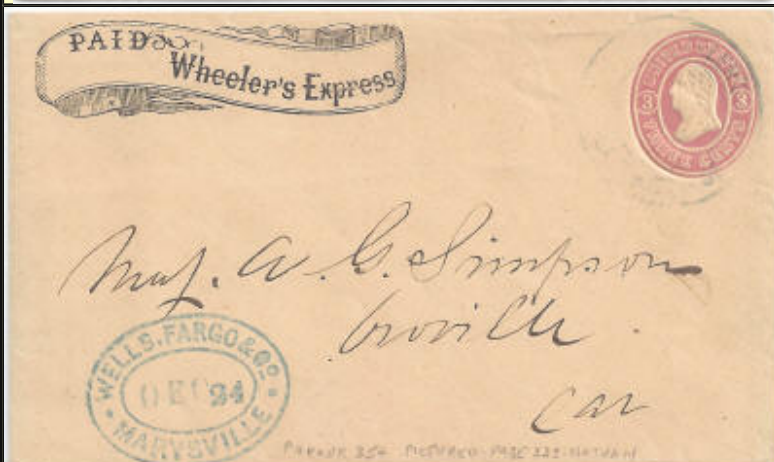 PAID
Wheeler's Express
3 3
THREE CENTS
Maj. A. G. Simpson
Oroville.
Cal
WELLS, FARGO & CO.
DEC 24
MARYSVILLE
PICTURED PAGE NATHAN